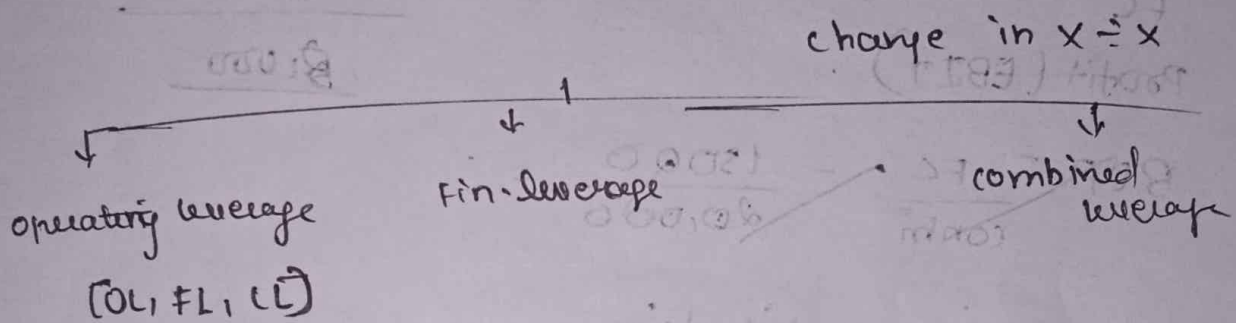 change in x ÷ x
operating leverage
Fin. leverage
combined leverage
[OL, FL, CL]